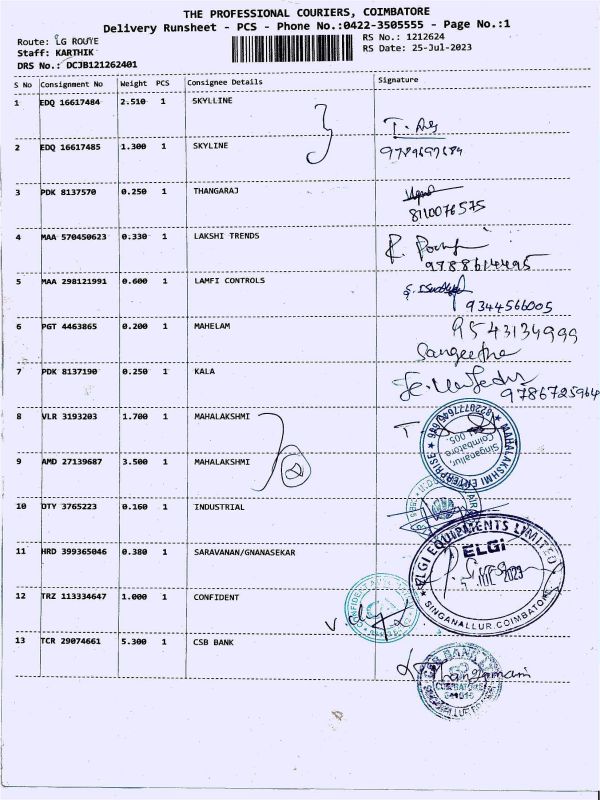 THE PROFESSIONAL COURIERS, COIMBATORE
Delivery Runsheet - PCS - Phone No.:0422-3505555 - Page No.:1
Route: LG ROUYE
RS No.: 1212624
Staff: KARTHIK
RS Date: 25-Jul-2023
DRS No.: DCJB121262401
S No Consignment No Weight PCS Consignee Details Signature
1 EDQ 16617484 2.510 1 SKYLLINE
2 EDQ 16617485 1.300 1 SKYLINE
9789697689
3 PDK 8137570 0.250 1 THANGARAJ
8110076575
4 MAA 570450623 0.330 1 LAKSHI TRENDS
9788614495
5 MAA 298121991 0.600 1 LAMFI CONTROLS
9344566005
6 PGT 4463865 0.200 1 MAHELAM
9543134999
Sangeetha
7 PDK 8137190 0.250 1 KALA
9786725964
8 VLR 3193203 1.700 1 MAHALAKSHMI
MAHALAKSHMI ENTERPRISE
Singanallur,
Coimbatore
9 AMD 27139687 3.500 1 MAHALAKSHMI
10 DTY 3765223 0.160 1 INDUSTRIAL
ELGI EQUIPMENTS LIMITED
ELGi
2023
SINGANALLUR, COIMBATORE
11 HRD 399365046 0.380 1 SARAVANAN/GNANASEKAR
12 TRZ 113334647 1.000 1 CONFIDENT
13 TCR 29074661 5.300 1 CSB BANK
COIMBATORE